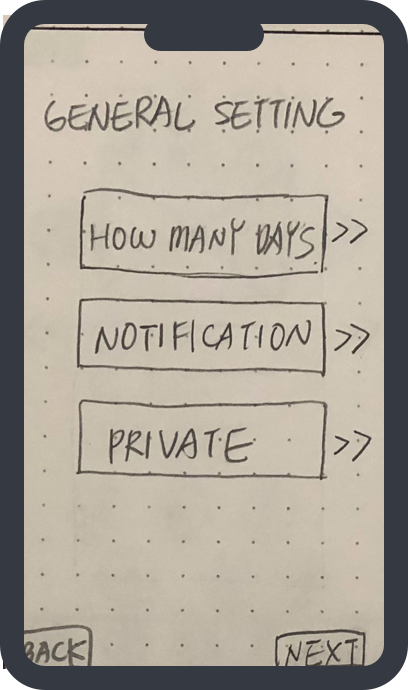 GENERAL SETTING
HOW MANY DAYS >>
NOTIFICATION >>
PRIVATE >>
BACK NEXT